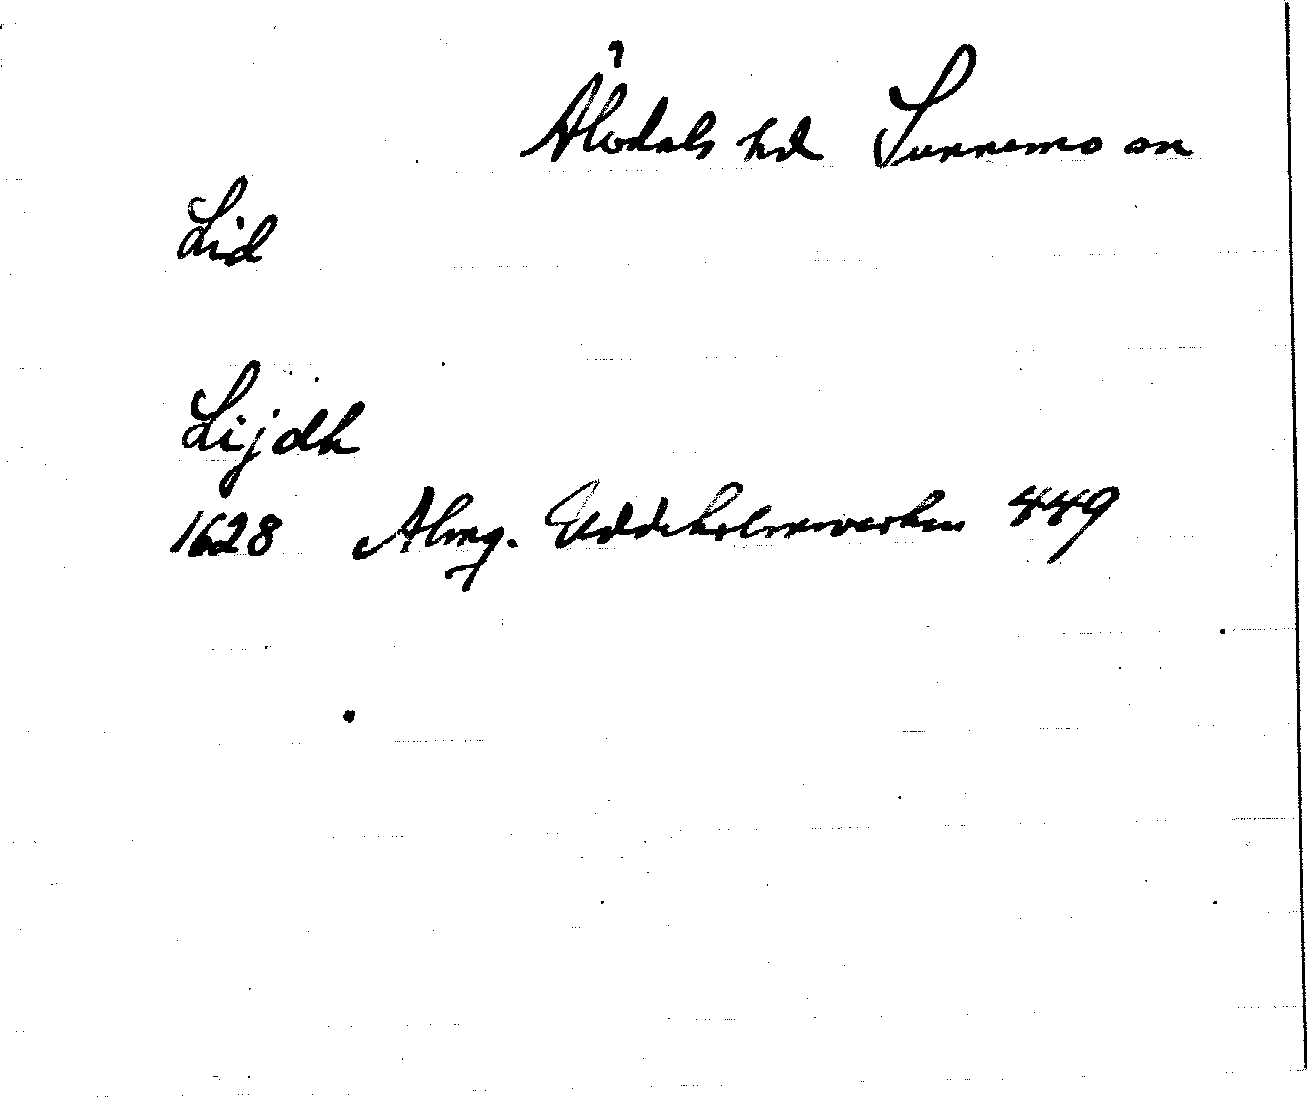 Älvdals hd Sunnemo sn
Lid
Lijdh
1628 Almq. Uddeholmsverken 449